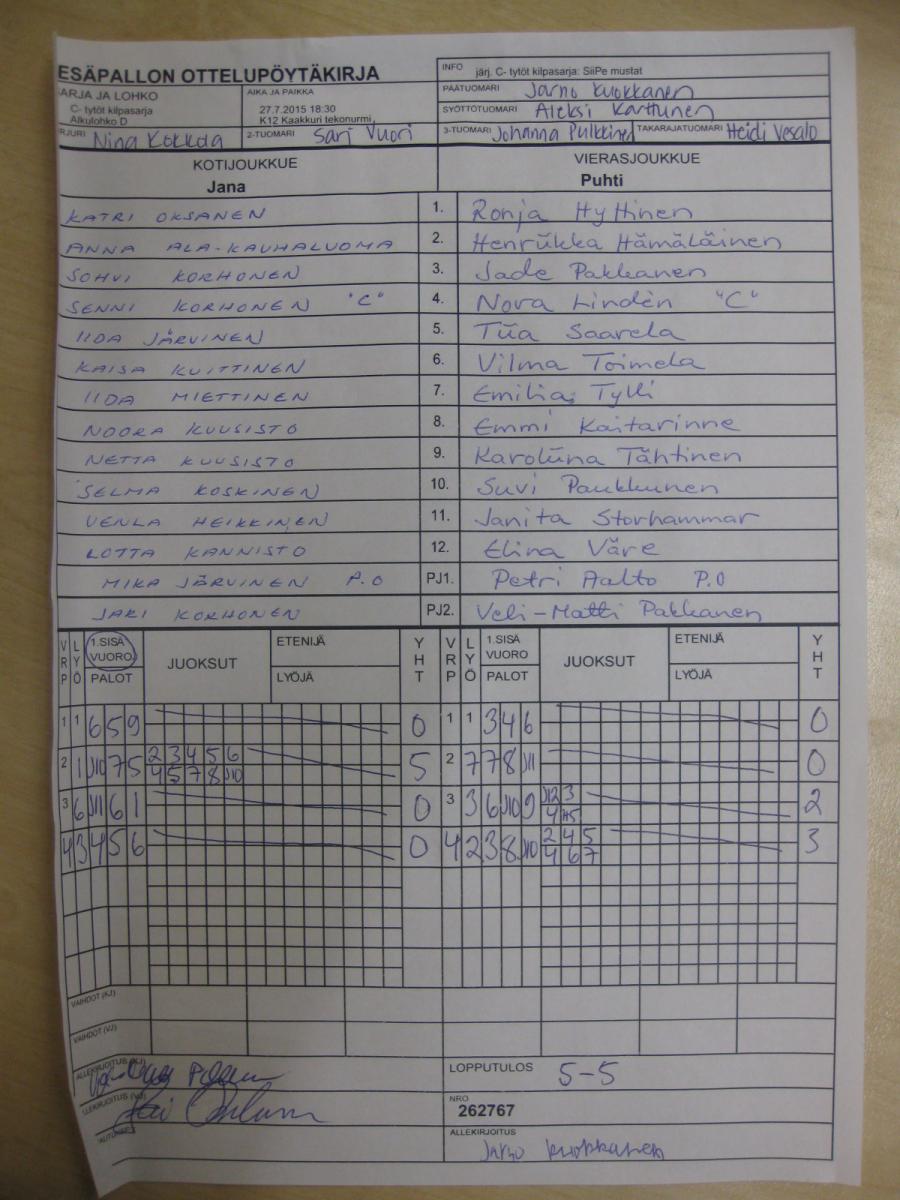 ESÄPALLON OTTELUPÖYTÄKIRJA
INFO järj. C- tytöt kilpasarja: SiiPe mustat
ARJA JA LOHKO
C- tytöt kilpasarja
Alkulohko D
AIKA JA PAIKKA
27.7.2015 18:30
K12 Kaakkuri tekonurmi,
PÄÄTUOMARI Jarno Kuokkanen
SYÖTTÖTUOMARI Aleksi Karttunen
RJURI Nina Kokkola
2-TUOMARI Sari Vuori
3-TUOMARI Johanna Pulkkinen
TAKARAJATUOMARI Heidi Vesalo
KOTIJOUKKUE
Jana
VIERASJOUKKUE
Puhti
KATRI OKSANEN 1. Ronja Hyttinen
ANNA ALA-KAUHALUOMA 2. Henriikka Hämäläinen
SOHVI KORHONEN 3. Jade Pakkanen
SENNI KORHONEN "C" 4. Nora Lindèn "C"
IIDA JÄRVINEN 5. Tiia Saarela
KAISA KUITTINEN 6. Vilma Toimela
IIDA MIETTINEN 7. Emilia Tylli
NOORA KUUSISTO 8. Emmi Kaitarinne
NETTA KUUSISTO 9. Karoliina Tähtinen
SELMA KOSKINEN 10. Suvi Paukkunen
VENLA HEIKKINEN 11. Janita Storhammar
LOTTA KANNISTO 12. Elina Väre
MIKA JÄRVINEN P.O PJ1. Petri Aalto P.O
JARI KORHONEN PJ2. Veli-Matti Pakkanen
VRP LYÖ 1.SISÄ VUORO PALOT JUOKSUT ETENIJÄ LYÖJÄ YHT VRP LYÖ 1.SISÄ VUORO PALOT JUOKSUT ETENIJÄ LYÖJÄ YHT
1 1 6 5 9 0 1 1 3 4 6 0
2 1 J10 7 5 2 3 4 5 6 5 2 7 7 8 J11 0
4 5 7 8 J10
3 6 J11 6 1 0 3 3 6 J10 9 J12 3 2
4
4 3 4 5 6 0 4 2 3 8 J10 2 4 5 3
4 6 7
VAIHDOT (KJ)
VAIHDOT (VJ)
ALLEKIRJOITUS (KJ)
LOPPUTULOS 5-5
LLEKIRJOITUS (VJ)
NRO
262767
ALLEKIRJOITUS
Jarno Kuokkanen